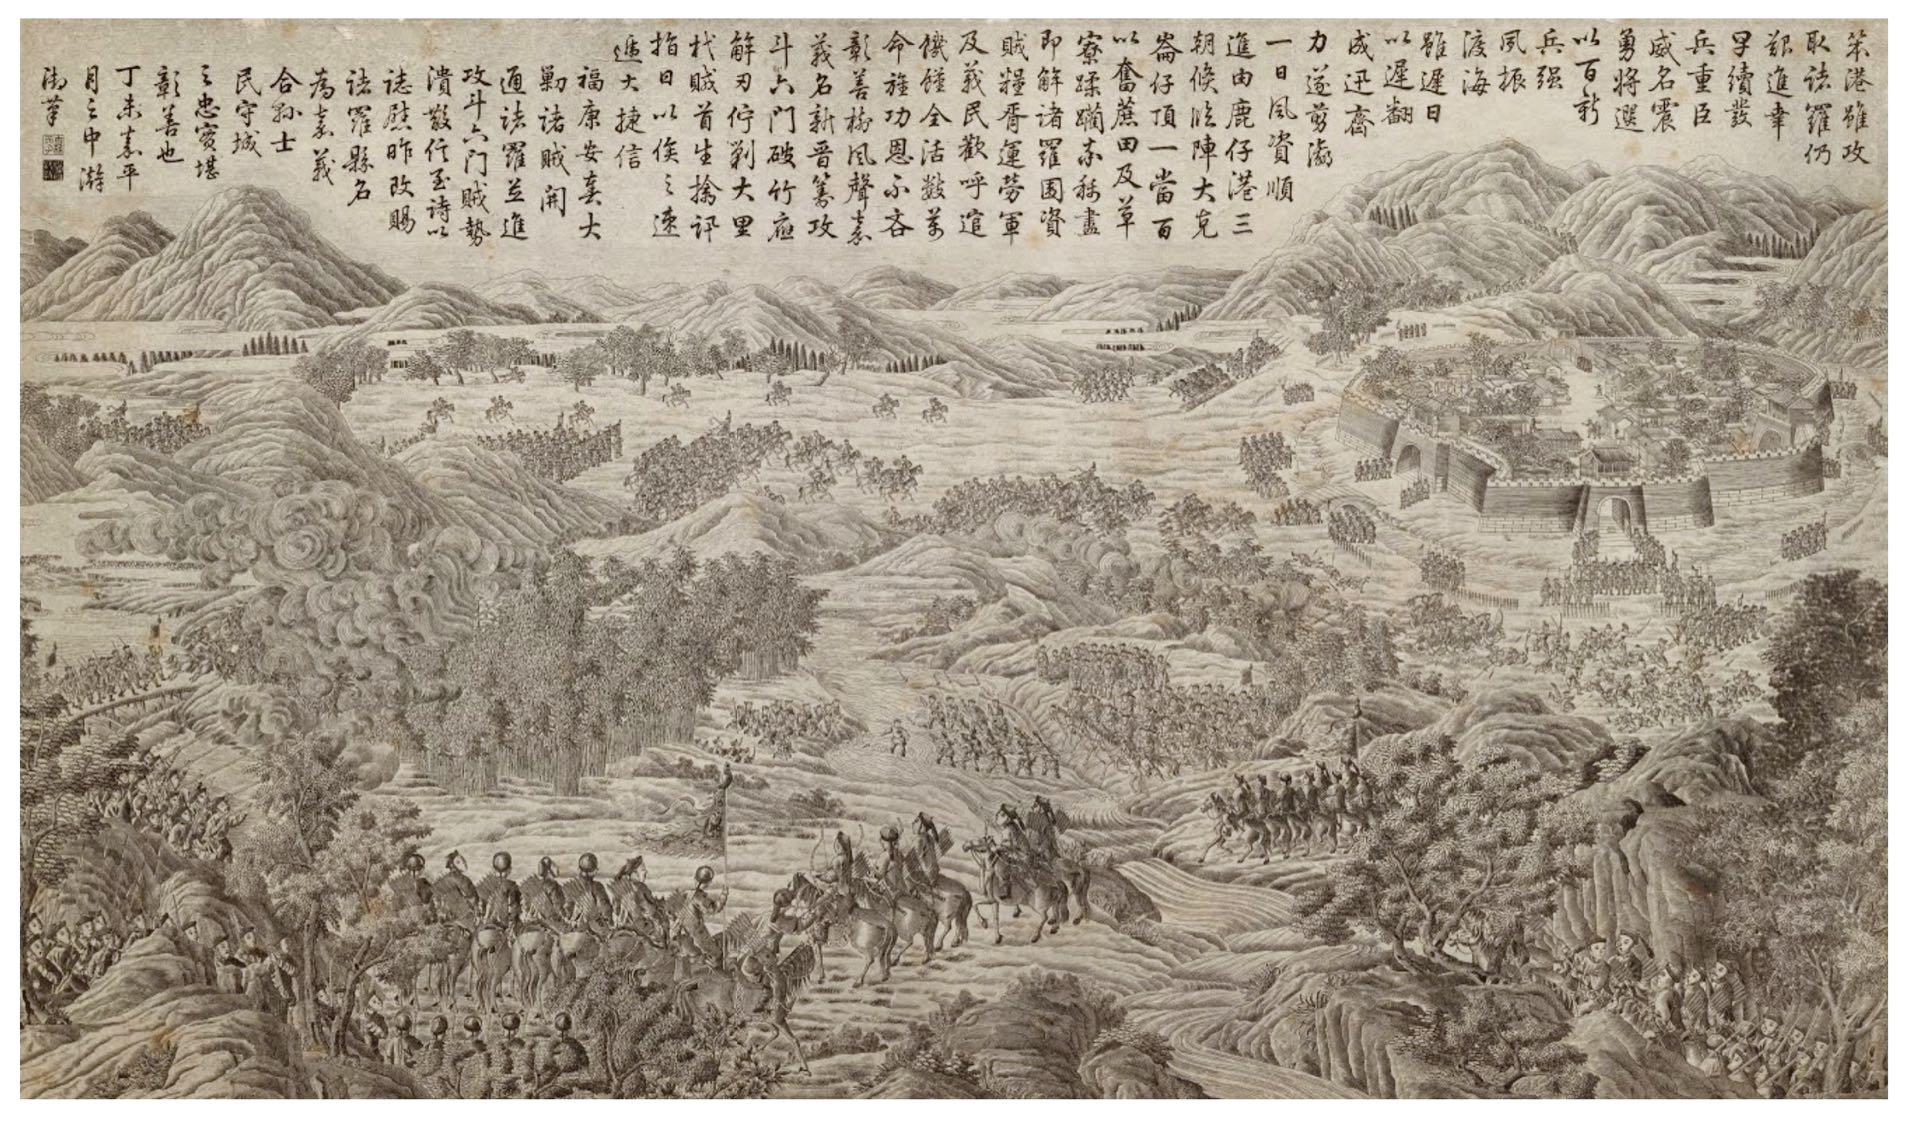 笨港雖攻
取諸羅仍
艱進幸
早續發
兵重臣
威名震
勇將選
以百新
兵强
夙振
渡海
雖遲日
以遲翻
成迅齊
力遂剪瀛
一日風資順
進由鹿仔港三
朝候臨陣大克
崙仔頂一當百
以奮蔗田及草
寮蹂躪亦稱盡
即解諸羅圍資
賊糧胥運勞軍
及義民歡呼逭
饑饉全活數萬
命旌功恩不吝
彰善樹風聲嘉
義名新晋籌攻
斗六門破竹應
解刃佇剿大里
杙賊首生擒訊
指日以俟之速
遞大捷信
福康安奏大
勦諸賊開
通諸羅並進
攻斗六門賊勢
潰散信至詩以
誌慰昨改賜
諸羅縣名
為嘉義
合縣士
民守城
之忠實堪
彰善也
丁未嘉平
月之中澣
御筆